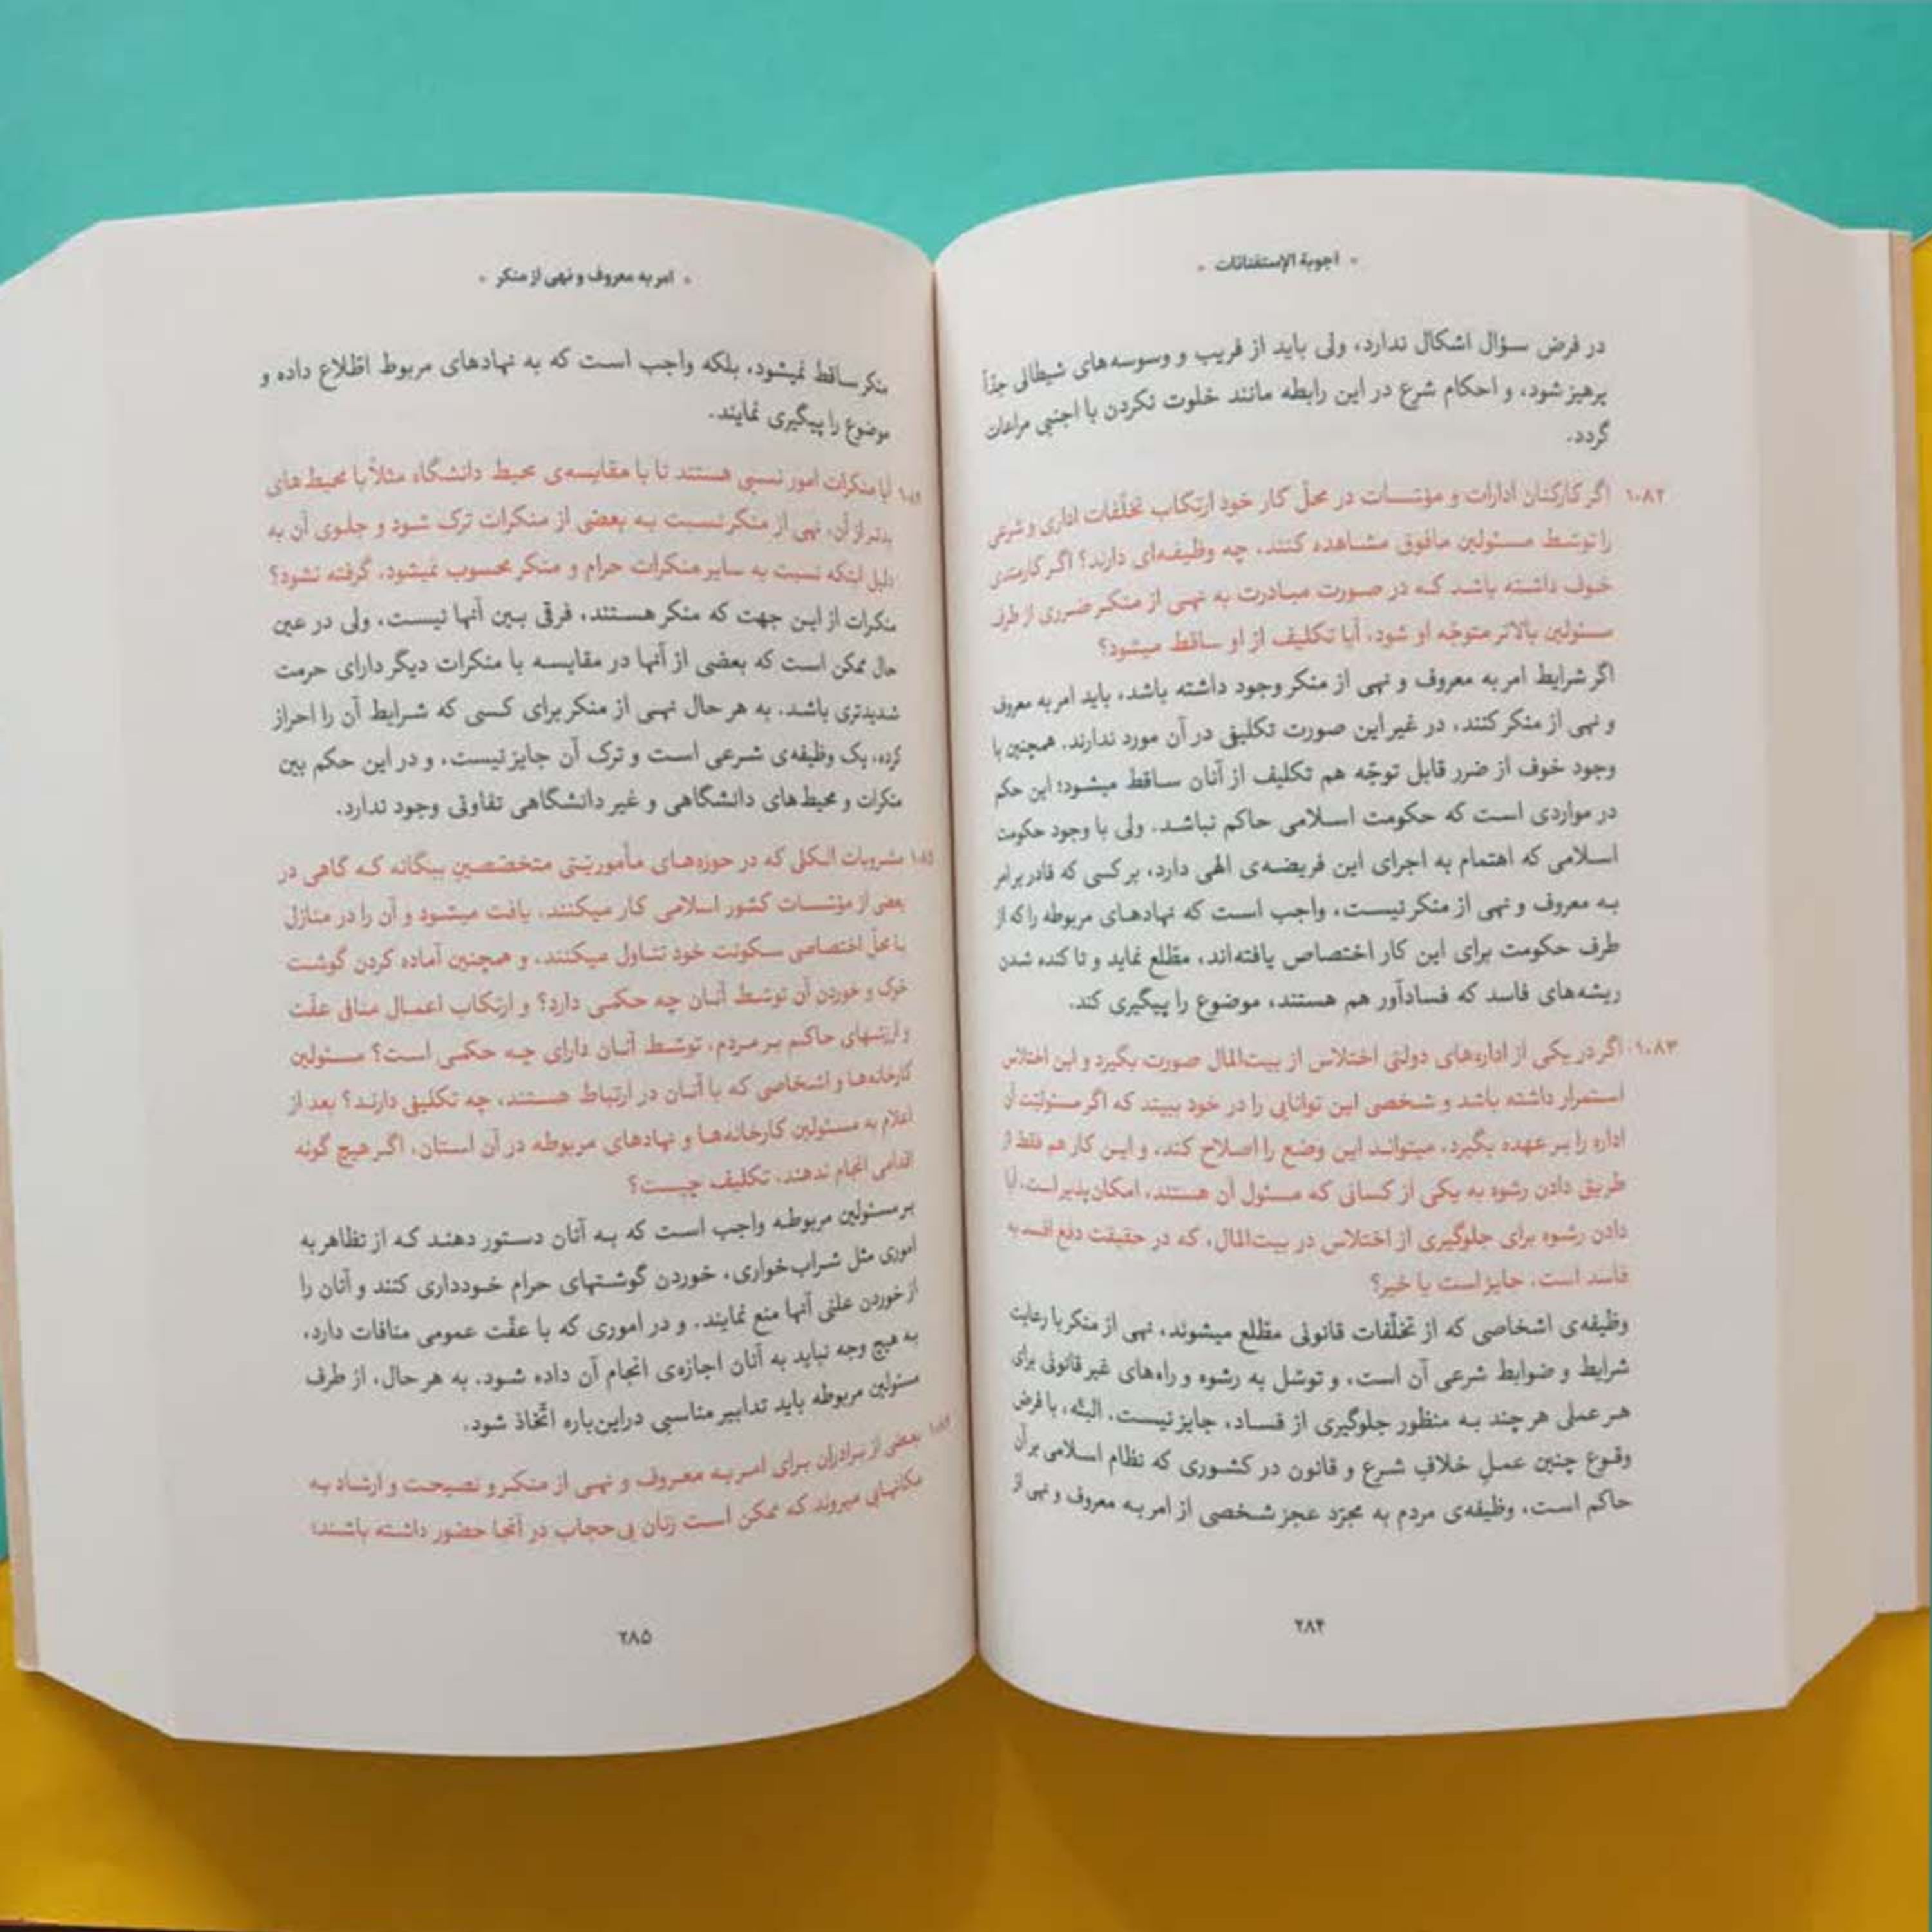 اجوبة الإستفتائات
در فرض سؤال اشکال ندارد، ولی باید از فریب و وسوسه‌های شیطانی جدّاً
پرهیز شود، و احکام شرع در این رابطه مانند خلوت نکردن با اجنبی مراعات
گردد.
۱۰۸۲ اگر کارکنان ادارات و مؤسّسات در محلّ کار خود ارتکاب تخلّفات اداری و شرعی
را توسّط مسئولین مافوق مشاهده کنند، چه وظیفه‌ای دارند؟ اگر کارمندی
خوف داشته باشد که در صورت مبادرت به نهی از منکر ضرری از طرف
مسئولین بالاتر متوجّه او شود، آیا تکلیف از او ساقط میشود؟
اگر شرایط امر به معروف و نهی از منکر وجود داشته باشد، باید امر به معروف
و نهی از منکر کنند، در غیر این صورت تکلیفی در آن مورد ندارند. همچنین با
وجود خوف از ضرر قابل توجّه هم تکلیف از آنان ساقط میشود؛ این حکم
در مواردی است که حکومت اسلامی حاکم نباشد. ولی با وجود حکومت
اسلامی که اهتمام به اجرای این فریضه‌ی الهی دارد، بر کسی که قادر بر امر
به معروف و نهی از منکر نیست، واجب است که نهادهای مربوطه را که از
طرف حکومت برای این کار اختصاص یافته‌اند، مطّلع نماید و تا کنده شدن
ریشه‌های فاسد که فسادآور هم هستند، موضوع را پیگیری کند.
۱۰۸۳ اگر در یکی از اداره‌های دولتی اختلاس از بیت‌المال صورت بگیرد و این اختلاس
استمرار داشته باشد و شخصی این توانایی را در خود ببیند که اگر مسئولیّت آن
اداره را بر عهده بگیرد، میتواند این وضع را اصلاح کند، و این کار هم فقط از
طریق دادن رشوه به یکی از کسانی که مسئول آن هستند، امکان‌پذیر است، آیا
دادن رشوه برای جلوگیری از اختلاس در بیت‌المال، که در حقیقت دفع افسد به
فاسد است، جایز است یا خیر؟
وظیفه‌ی اشخاصی که از تخلّفات قانونی مطّلع میشوند، نهی از منکر با رعایت
شرایط و ضوابط شرعی آن است، و توسّل به رشوه و راه‌های غیر قانونی برای
هر عملی هر چند به منظور جلوگیری از فساد، جایز نیست. البتّه، با فرض
وقوع چنین عملِ خلافِ شرع و قانون در کشوری که نظام اسلامی بر آن
حاکم است، وظیفه‌ی مردم به مجرّد عجز شخصی از امر به معروف و نهی از
۲۸۴
امر به معروف و نهی از منکر
منکر ساقط نمیشود، بلکه واجب است که به نهادهای مربوط اطّلاع داده و
موضوع را پیگیری نمایند.
آیا منکرات امور نسبی هستند تا با مقایسه‌ی محیط دانشگاه مثلاً با محیط‌های
بدتر از آن، نهی از منکر نسبت به بعضی از منکرات ترک شود و جلوی آن به
دلیل اینکه نسبت به سایر منکرات حرام و منکر محسوب نمیشود، گرفته نشود؟
منکرات از این جهت که منکر هستند، فرقی بین آنها نیست، ولی در عین
حال ممکن است که بعضی از آنها در مقایسه با منکرات دیگر دارای حرمت
شدیدتری باشد. به هر حال نهی از منکر برای کسی که شرایط آن را احراز
کرده، یک وظیفه‌ی شرعی است و ترک آن جایز نیست، و در این حکم بین
منکرات و محیط‌های دانشگاهی و غیر دانشگاهی تفاوتی وجود ندارد.
مشروبات الکلی که در حوزه‌های مأموریّتی متخصّصین بیگانه که گاهی در
بعضی از مؤسّسات کشور اسلامی کار میکنند، یافت میشود و آن را در منازل
یا محلّ اختصاصی سکونت خود تناول میکنند، و همچنین آماده کردن گوشت
خوک و خوردن آن توسّط آنان چه حکمی دارد؟ و ارتکاب اعمال منافی عفّت
و ارزشهای حاکم بر مردم، توسّط آنان دارای چه حکمی است؟ مسئولین
کارخانه‌ها و اشخاصی که با آنان در ارتباط هستند، چه تکلیفی دارند؟ بعد از
اعلام به مسئولین کارخانه‌ها و نهادهای مربوطه در آن استان، اگر هیچ گونه
اقدامی انجام ندهند، تکلیف چیست؟
بر مسئولین مربوطه واجب است که به آنان دستور دهند که از تظاهر به
اموری مثل شراب‌خواری، خوردن گوشتهای حرام خودداری کنند و آنان را
از خوردن علنی آنها منع نمایند. و در اموری که با عفّت عمومی منافات دارد،
به هیچ وجه نباید به آنان اجازه‌ی انجام آن داده شود. به هر حال، از طرف
مسئولین مربوطه باید تدابیر مناسبی دراین‌باره اتّخاذ شود.
بعضی از برادران برای امر به معروف و نهی از منکر و نصیحت و ارشاد به
مکانهایی میروند که ممکن است زنان بی‌حجاب در آنجا حضور داشته باشند؛
۲۸۵